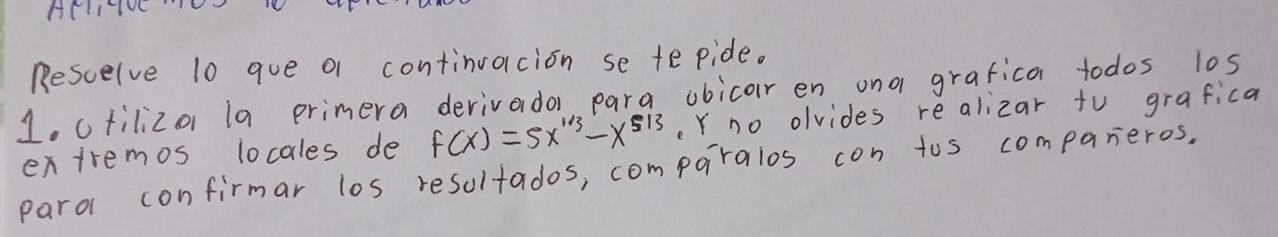 Resuelve lo que a continuación se te pide.
1. Utiliza la primera derivada para ubicar en una grafica todos los
extremos locales de f(x) = 5x^1/3 - x^5/3. Y no olvides realizar tu grafica
para confirmar los resultados, compáralos con tus compañeros.